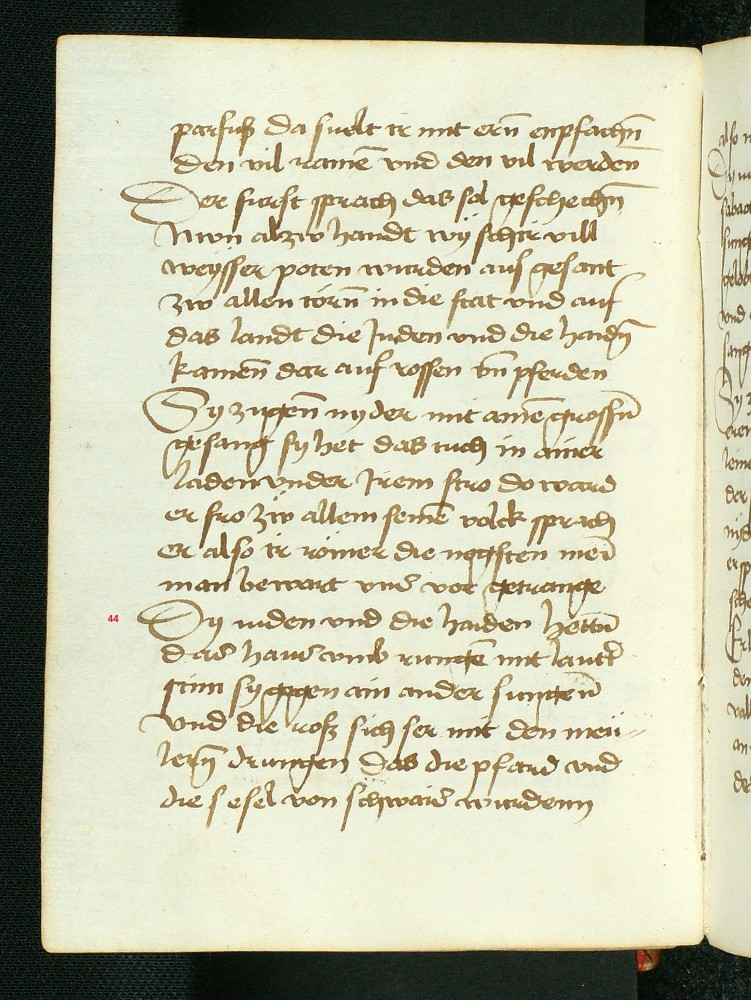 parfuß da suelt ir mit ern̄ enpfachn̄
den vil ramē vnd den vil werden
Der furst sprach das sol geschechn̄
Nwn alzw handt wy schir vill
weysser poten wurden aus gesant
zw allen törn̄ in die stat vnd auf
das landt die Juden vnd die haidn̄
kamen̄ dar auf rossen vn̄ pferden
Sy zugen̄ nyder mit ainē grossn̄
gesang sy het das tuch in ainer
laden vnder Jrem
er fro zw allem seinē volck sprach
er also ir römer die
man bewart vns vor getrange
44 Dy iuden vnd die haiden hettn̄
das haus vmb rungē mit lautr̄
stim sy gegen ain ander sungen̄
vnd die roß sich ser mit den meü-
lern̄ drungen das die pfard vnd
die esel von schwais wurdenn